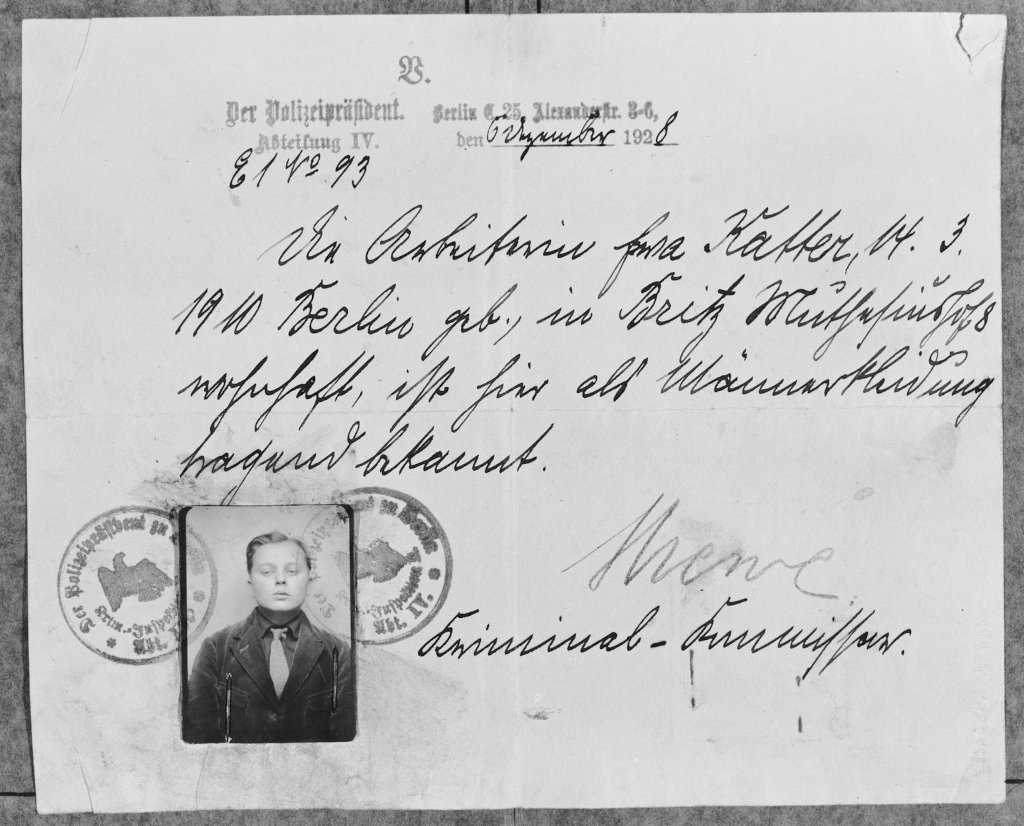 V.
Der Polizeipräsident. Berlin C. 25, Alexanderstr. 3-6,
Abteilung IV. den 6 Dezember 1928
E 1 No 93
Die Arbeiterin Eva Katter, 14. 3.
1910 Berlin geb., in Britz Muthesiushof 8
wohnhaft, ist hier als Männerkleidung
tragend bekannt.
Der Polizeipräsident zu Berlin
Abt. IV.
Kriminal-Kommissar.